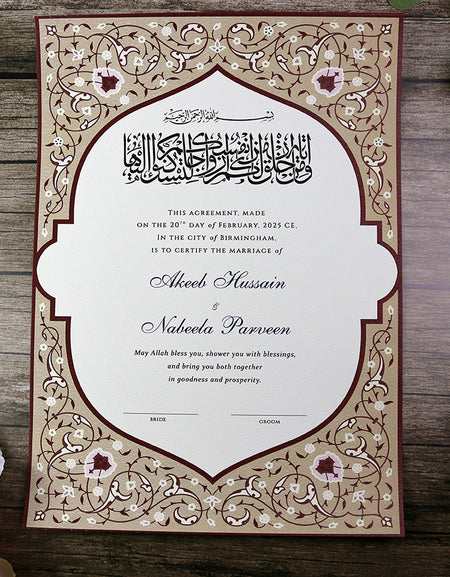 بسم الله الرحمن الرحيم
ومن آياته أن خلق لكم من أنفسكم أزواجا لتسكنوا إليها
THIS AGREEMENT, MADE
ON THE 20TH DAY OF FEBRUARY, 2025 CE,
IN THE CITY OF BIRMINGHAM,
IS TO CERTIFY THE MARRIAGE OF
Akeeb Hussain
&
Nabeela Parveen
May Allah bless you, shower you with blessings,
and bring you both together
in goodness and prosperity.
BRIDE
GROOM